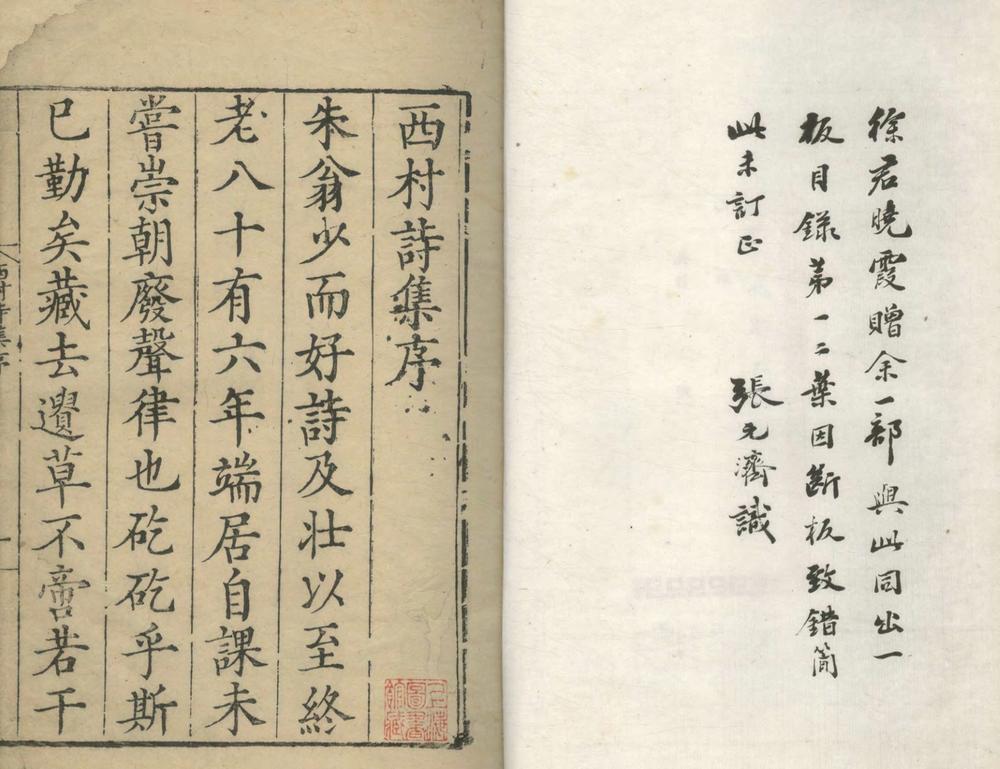 徐君曉霞贈余一部與此同出一
板目錄第一二葉因斷板致錯簡
此未訂正 張元濟識
西村詩集序
朱翁少而好詩及壯以至終
老八十有六年端居自課未
嘗崇朝廢聲律也矻矻乎斯
已勤矣藏去遺草不啻若干
西村詩集序
上海圖書館藏